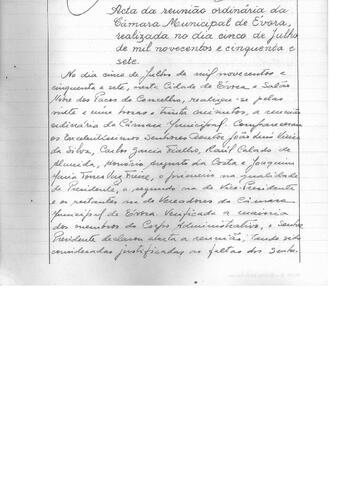 Acta da reunião ordinária da
Câmara Municipal de Évora,
realizada no dia cinco de Julho
de mil novecentos e cinquenta e
sete.
No dia cinco de Julho de mil novecentos e
cinquenta e sete, nesta Cidade de Évora e Salão
Nobre dos Paços do Concelho, realizou-se pelas
vinte e uma horas e trinta minutos, a reunião
ordinária da Câmara Municipal. Compareceram
os Excelentíssimos Senhores Doutor João Luís Vieira
da Silva, Carlos Garcia Fialho, Raúl Calado de
Almeida, Honório Augusto da Costa e Joaquim
Maria Torres Vaz Freire, o primeiro na qualidade
de Presidente, o segundo na de Vice-Presidente
e os restantes na de Vereadores da Câmara
Municipal de Évora. Verificada a maioria
dos membros do Corpo Administrativo, o Senhor
Presidente declarou aberta a reunião, tendo sido
consideradas justificadas as faltas dos Senho-